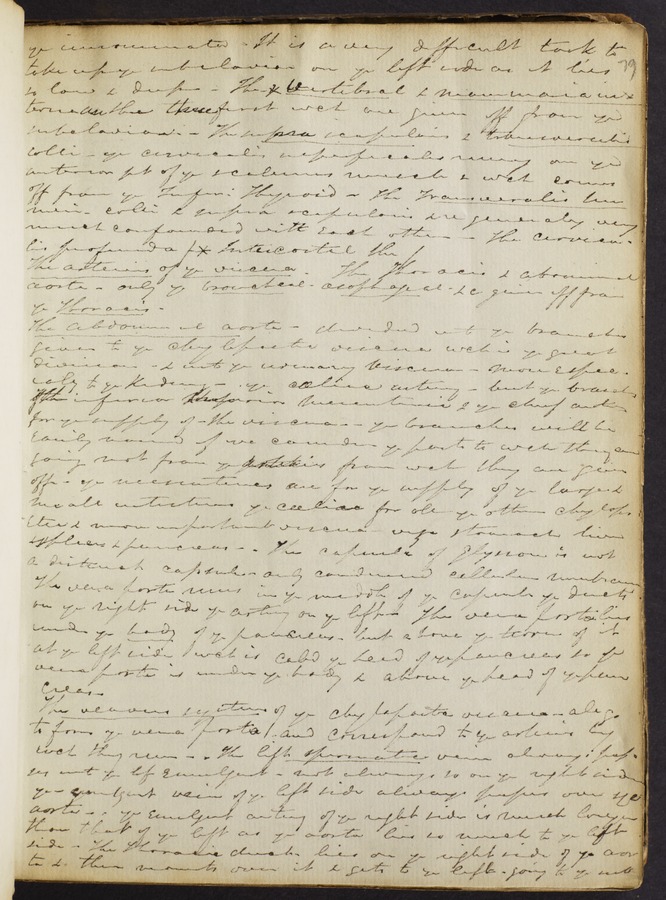 ye innominata - It is a very difficult task to
take up ye subclavian on ye left side as it lies
79
so low & deep - The vertebral & mammaria in-
terna are the first wch are given off from ye
subclavian - The supra scapularis & transversalis
colli - ye cervicalis superficialis runs on ye
anterior pt of ye scalenus muscle & wch comes
off from ye Infer: Thyroid - The Transversalis
colli & supra scapularis are generally very
much confounded with each other - The cervica-
lis profunda Intercostal
The arteries of ye viscera The Thoracic & abdominal
aorta - only ye bronchial - aesophageal - &c given off from
ye Thoracic -
The abdominal aorta - divided into ye branches
given to ye chylopoetic viscera wch is ye great
division - & into ye urinary Viscera - more espec-
ialy to ye Kidney - ye caeliac artery -
inferior Mesenterics & ye chief arteries
for ye supply of the viscera - ye branches will be
easily named if we consider ye parts to wch they are
going not from ye arteries from wch they are given
off - ye mesenterics are for ye supply of ye large &
small intestines ye caeliac for all ye other chylopo-
etic & more important viscera viz stomach liver
spleen & pancreas - The capsule of Glysson is not
a distinct capsule only condensed cellular membrane
The vena porta runs in ye middle of ye capsule ye ducts
on ye right side ye artery on ye left. The vena porta lies
under ye body of ye pancreas - but above ye of it
at ye left side wch is calld ye head of ye pancreas so ye
vena porta is under ye body & above ye head of ye pan-
creas
The venous system of ye chylopoetic viscera all go
to form ye vena porta! and correspond to ye arteries by
wch they run - The left spermatic vein always pass-
es into ye lef Emulgent - not always so on ye right side
ye emulgent vein of ye left side always passes over ye
aorta - ye Emulgent artery of ye right side is much longer
than that of ye left as ye aorta lies so much to ye left
side - The Thoracic duct lies on ye right side of ye aor-
ta & then mounts over it & gets to ye left - going to ye